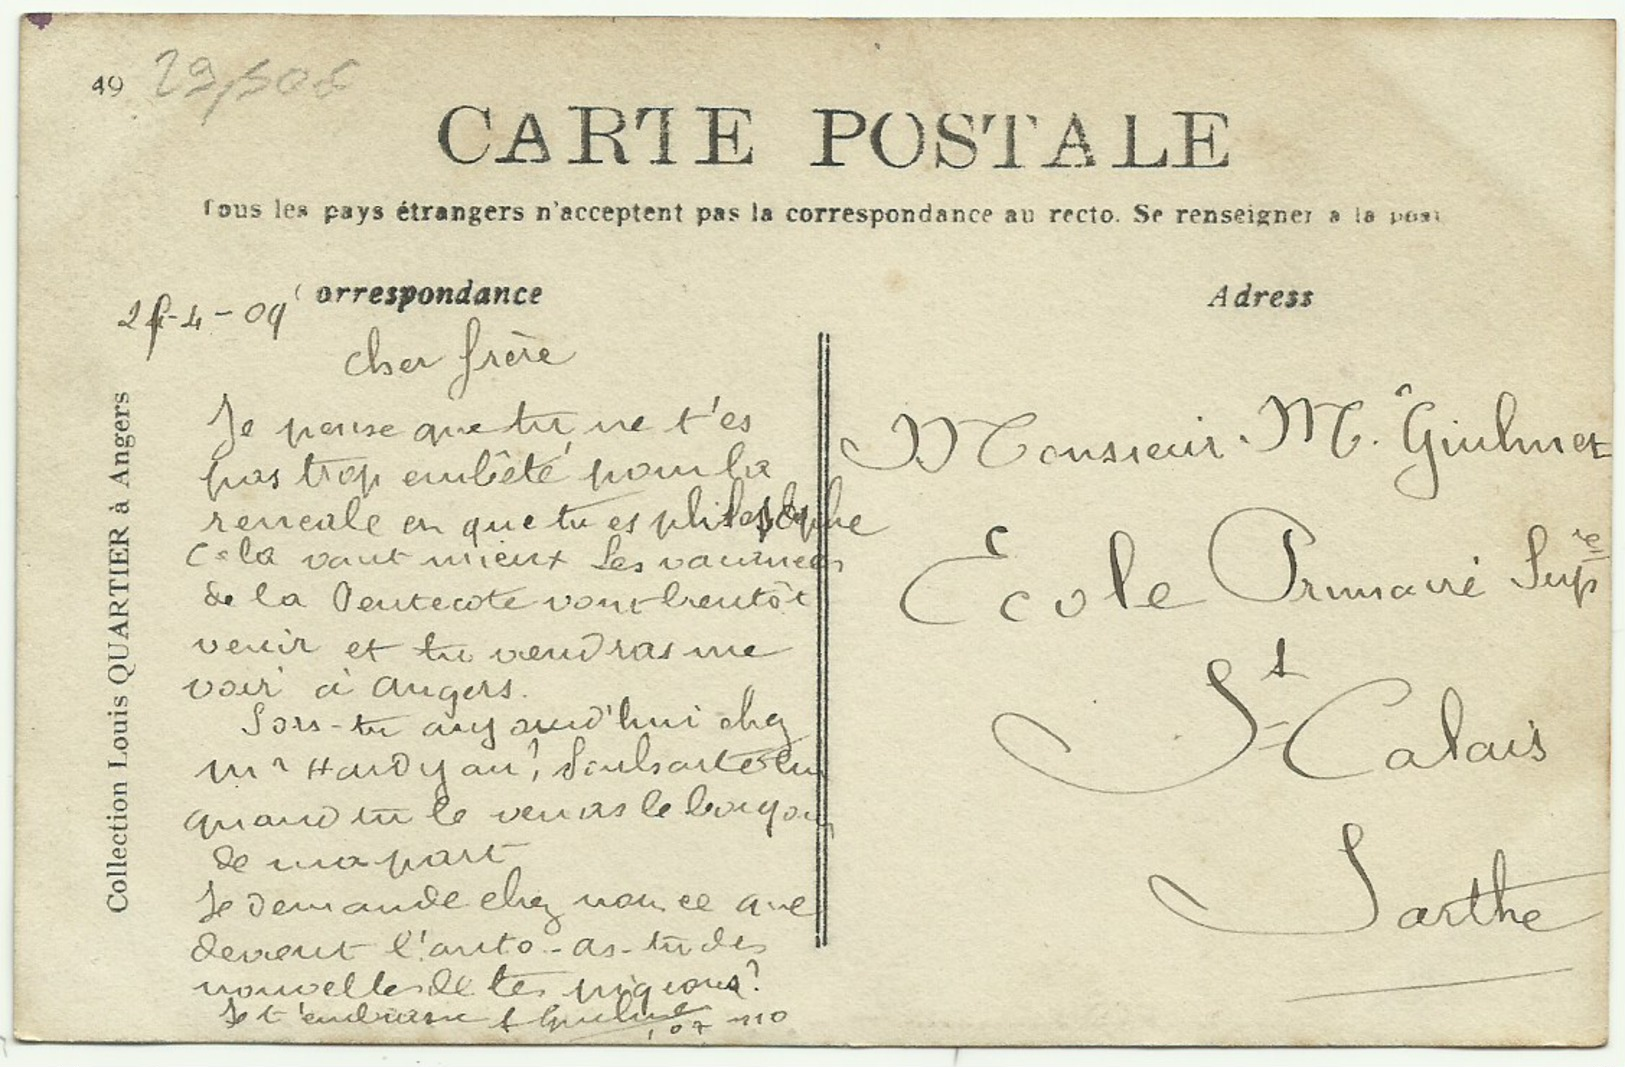 49
CARTE POSTALE
Tous les pays étrangers n'acceptent pas la correspondance au recto. Se renseigner à la post
orrespondance
Adress
4-09
cher frère
Je pense que tu ne t'es
pas trop embêté pour la
en que tu es philosophe
cela vaut mieux les vacances
de la Pentecote vont bientôt
venir et tu viendras me
voir à Angers.
Sors-tu aujourd'hui chez
mr Hardyau? Souhaite lui
quand tu le verras le bonjour
de ma part
Je demande chez nous ce que
devient l'auto - as-tu des
nouvelles de tes pigeons?
Je t'embrasse
Collection Louis QUARTIER à Angers
Monsieur M.
Ecole Primaire Supre
St Calais
Sarthe